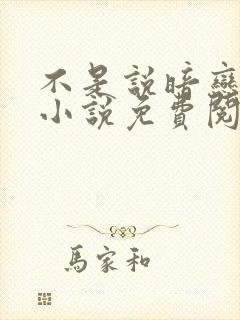 不是說暗戀
小說免費閱
馬家和